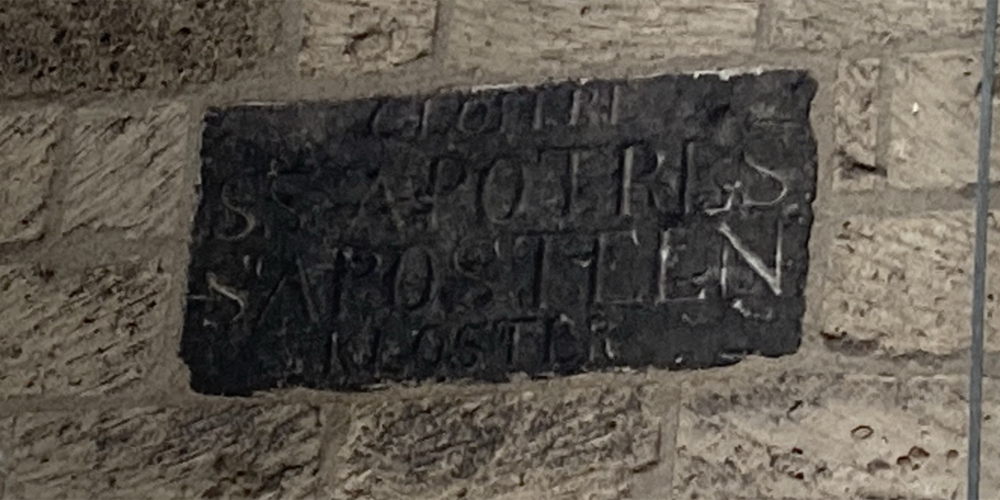 CLOITRE
SS. APOTRES.
S'APOSTLEN
KLOSTER